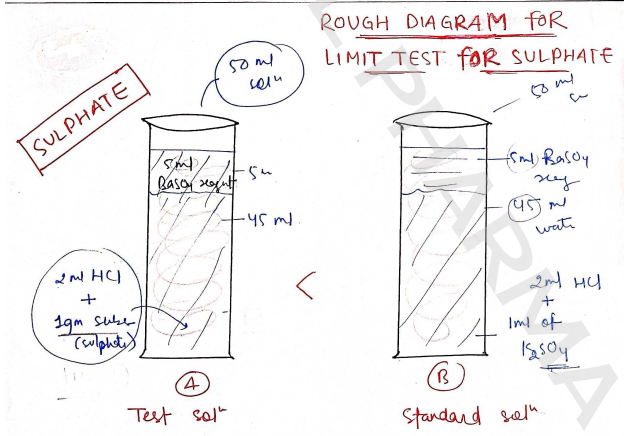 ROUGH DIAGRAM FOR
LIMIT TEST FOR SULPHATE
SULPHATE
50 ml
solⁿ
5ml
BaSO4 reagent
5m
45 ml
2ml HCl
+
1gm
(sulphate)
A
Test solⁿ
<
50 ml
5ml BaSO4
reg
45 ml
wate
2ml HCl
+
1ml of
K2SO4
B
Standard solⁿ
PHARMA